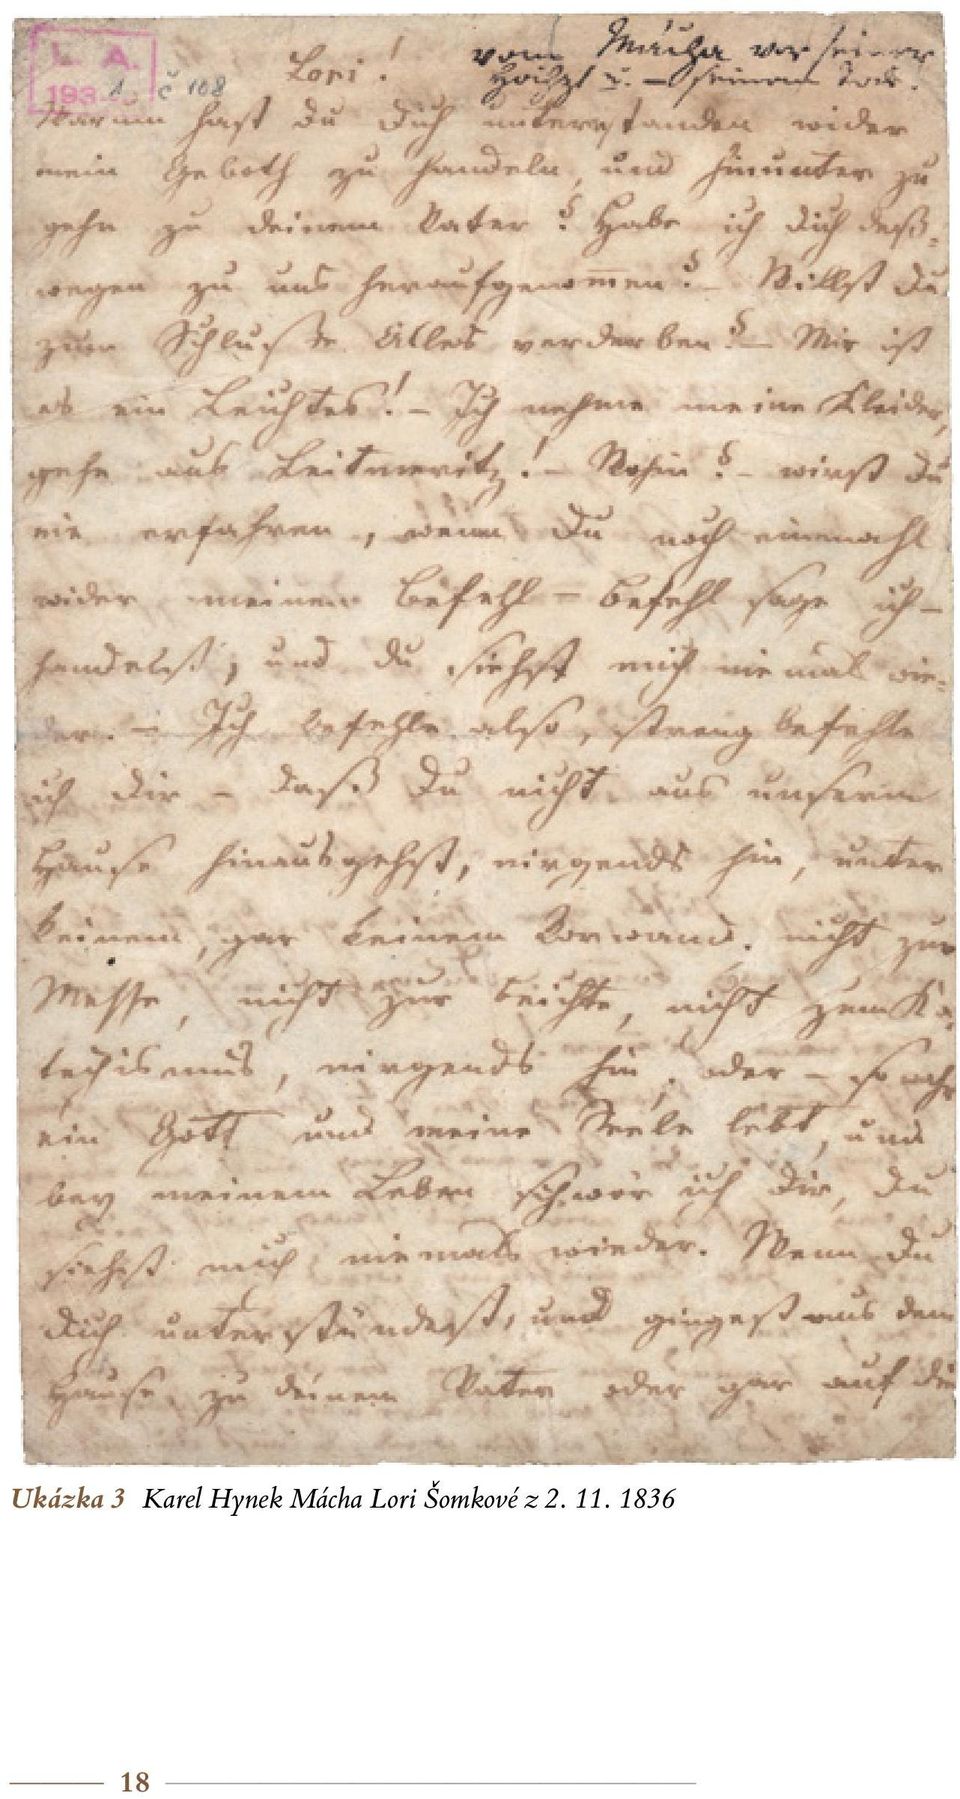 L. A.
193
1 č 108
Lori!
vom Mácha vor seiner
Hochzt u. – seinem Tode.
Warum hast du dich unterstanden wider
mein Geboth zu handeln, und hinunter zu
gehn zu deinem Vater? Habe ich dich deß-
wegen zu uns heraufgenom̅en? – Willst du
zum Schluße Alles verderben? – Mir ist
es ein Leichtes! – Ich nehme meine Kleider,
gehe aus Leitmeritz! – Wohin? – wirst du
nie erfahren, wenn du noch einmahl
wider meinen Befehl – Befehl sage ich –
handelst, und du siehst mich niemals wie-
der. – Ich befehle also, streng befehle
ich dir – daß du nicht aus unserm
Hause hinausgehst, nirgends hin, unter
keinem, gar keinem Vorwand. nicht zur
Messe, nicht zur Beichte, nicht zum Ka-
techismus, nirgends hin, oder – so wahr
ein Gott und meine Seele lebt, und
bey meinem Leben schwör ich dir, du
siehst mich niemals wieder. Wenn du
dich unterstündest, und gingest aus dem
Hause zu deinem Vater oder gar auf die
Ukázka 3 Karel Hynek Mácha Lori Šomkové z 2. 11. 1836
18